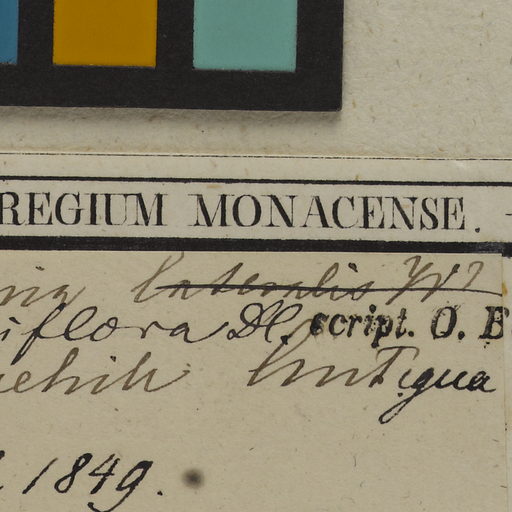 REGIUM MONACENSE.
lateralis W?
iflora Dl. script. O. B
Antigua
1849.